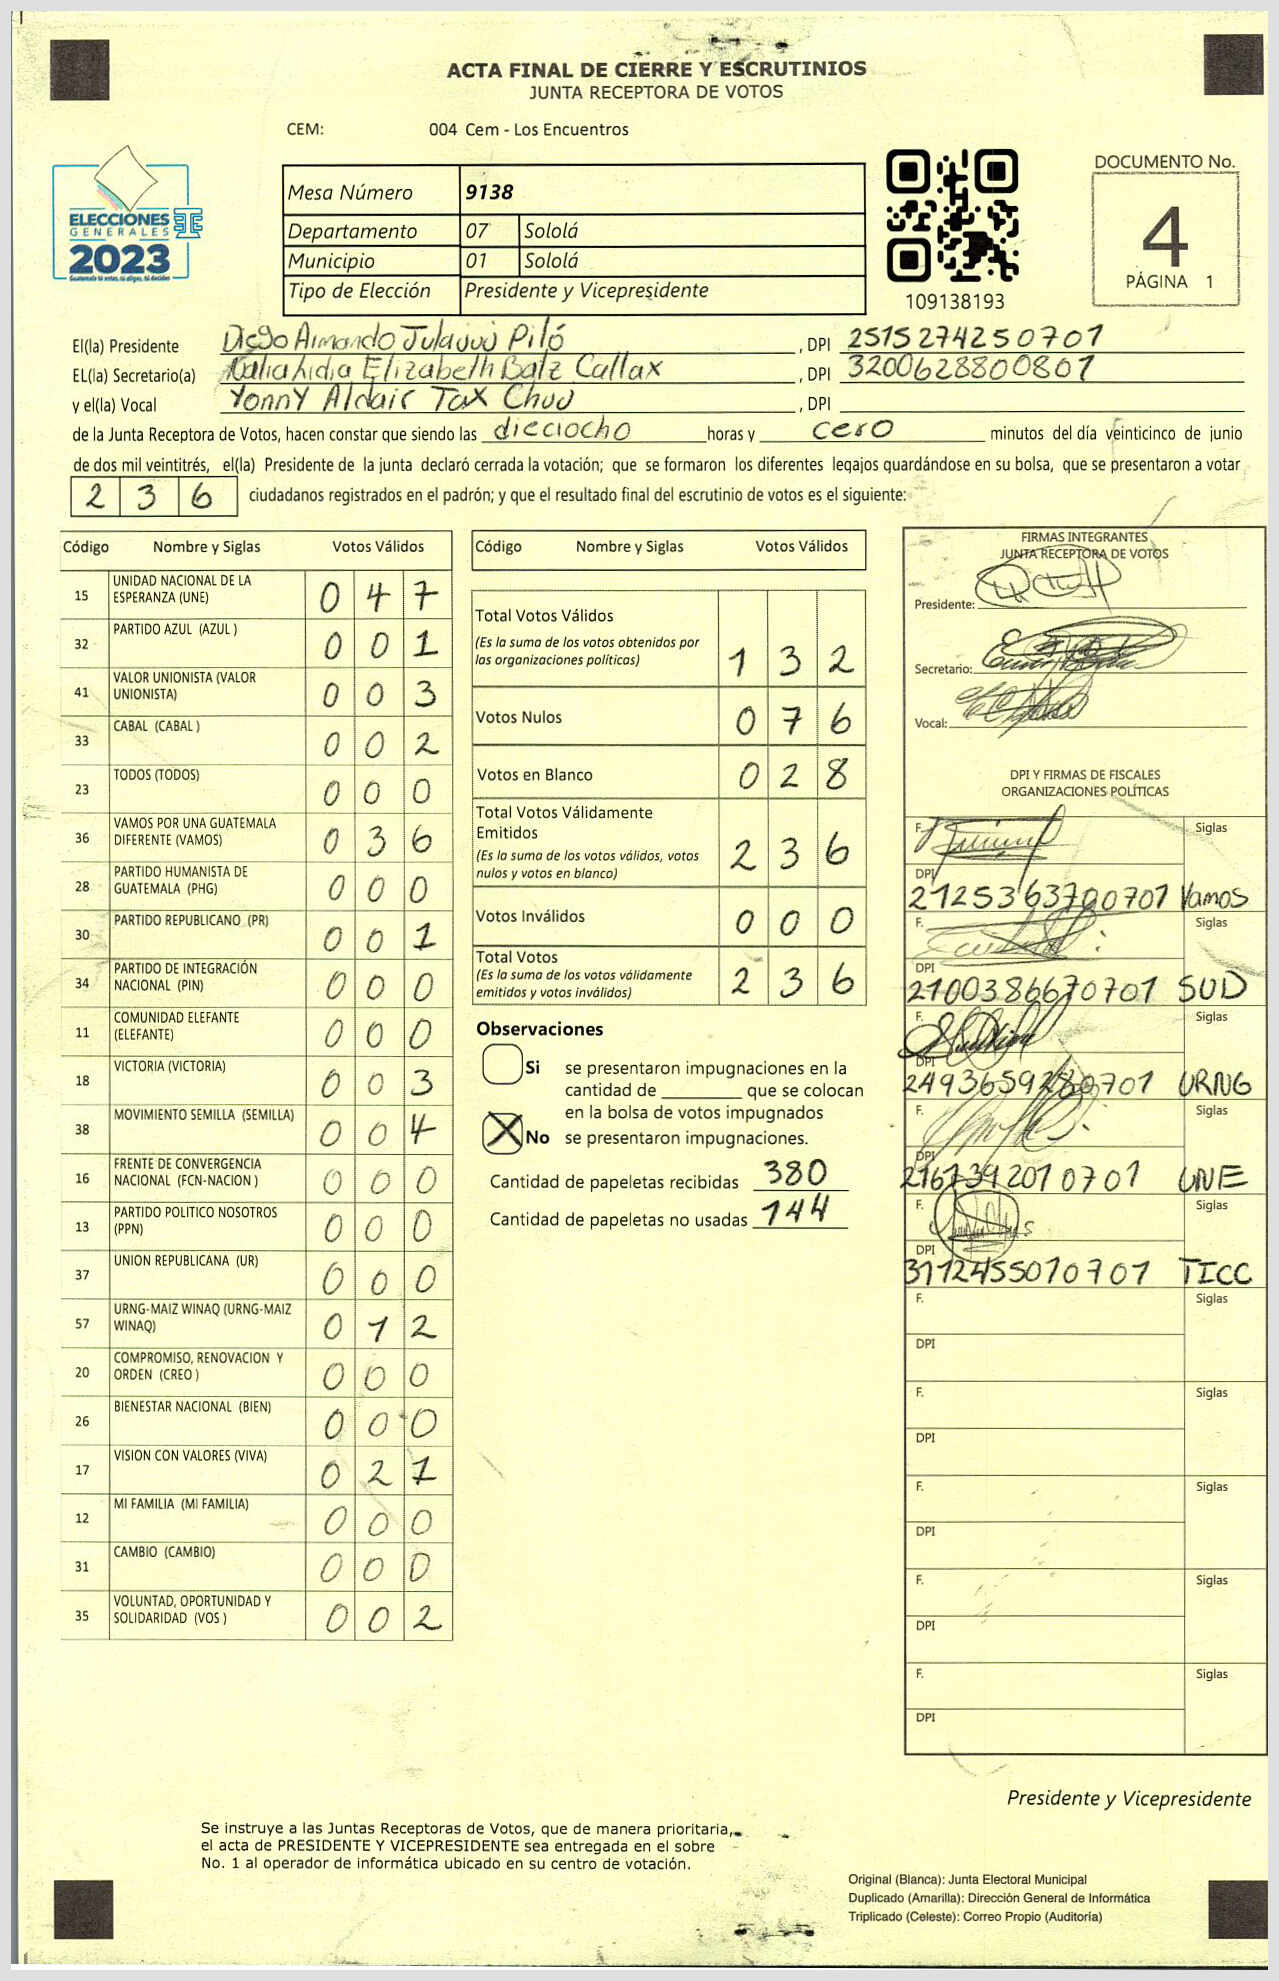 ACTA FINAL DE CIERRE Y ESCRUTINIOS
JUNTA RECEPTORA DE VOTOS
CEM: 004 Cem - Los Encuentros
ELECCIONES
GENERALES
2023
Mesa Número 9138
Departamento 07 Sololá
Municipio 01 Sololá
Tipo de Elección Presidente y Vicepresidente
109138193
DOCUMENTO No.
4
PÁGINA 1
El(la) Presidente Diego Armando Piló , DPI 2515274250701
EL(la) Secretario(a) Elizabeth Batz Callax , DPI 3200628800801
y el(la) Vocal Yonny Aldair Tax Chuu , DPI
de la Junta Receptora de Votos, hacen constar que siendo las dieciocho horas y cero minutos del día veinticinco de junio
de dos mil veintitrés, el(la) Presidente de la junta declaró cerrada la votación; que se formaron los diferentes legajos guardándose en su bolsa, que se presentaron a votar
2 3 6 ciudadanos registrados en el padrón; y que el resultado final del escrutinio de votos es el siguiente:
Código Nombre y Siglas Votos Válidos
15 UNIDAD NACIONAL DE LA ESPERANZA (UNE) 0 4 7
32 PARTIDO AZUL (AZUL ) 0 0 1
41 VALOR UNIONISTA (VALOR UNIONISTA) 0 0 3
33 CABAL (CABAL ) 0 0 2
23 TODOS (TODOS) 0 0 0
36 VAMOS POR UNA GUATEMALA DIFERENTE (VAMOS) 0 3 6
28 PARTIDO HUMANISTA DE GUATEMALA (PHG) 0 0 0
30 PARTIDO REPUBLICANO (PR) 0 0 1
34 PARTIDO DE INTEGRACIÓN NACIONAL (PIN) 0 0 0
11 COMUNIDAD ELEFANTE (ELEFANTE) 0 0 0
18 VICTORIA (VICTORIA) 0 0 3
38 MOVIMIENTO SEMILLA (SEMILLA) 0 0 4
16 FRENTE DE CONVERGENCIA NACIONAL (FCN-NACION ) 0 0 0
13 PARTIDO POLITICO NOSOTROS (PPN) 0 0 0
37 UNION REPUBLICANA (UR) 0 0 0
57 URNG-MAIZ WINAQ (URNG-MAIZ WINAQ) 0 1 2
20 COMPROMISO, RENOVACION Y ORDEN (CREO ) 0 0 0
26 BIENESTAR NACIONAL (BIEN) 0 0 0
17 VISION CON VALORES (VIVA) 0 2 1
12 MI FAMILIA (MI FAMILIA) 0 0 0
31 CAMBIO (CAMBIO) 0 0 0
35 VOLUNTAD, OPORTUNIDAD Y SOLIDARIDAD (VOS ) 0 0 2
Código Nombre y Siglas Votos Válidos
Total Votos Válidos
(Es la suma de los votos obtenidos por
las organizaciones políticas) 1 3 2
Votos Nulos 0 7 6
Votos en Blanco 0 2 8
Total Votos Válidamente
Emitidos
(Es la suma de los votos válidos, votos
nulos y votos en blanco) 2 3 6
Votos Inválidos 0 0 0
Total Votos
(Es la suma de los votos válidamente
emitidos y votos inválidos) 2 3 6
Observaciones
Si se presentaron impugnaciones en la
cantidad de ________ que se colocan
en la bolsa de votos impugnados
X No se presentaron impugnaciones.
Cantidad de papeletas recibidas 380
Cantidad de papeletas no usadas 144
FIRMAS INTEGRANTES
JUNTA RECEPTORA DE VOTOS
Presidente:
Secretario:
Vocal:
DPI Y FIRMAS DE FISCALES
ORGANIZACIONES POLÍTICAS
F. Siglas
DPI
2125363700701 Vamos
F. Siglas
DPI
2100386670701 SUD
F. Siglas
DPI
2493659280701 URNG
F. Siglas
DPI
2167392010701 UNE
F. Siglas
DPI
3112455010701 TICC
F. Siglas
DPI
F. Siglas
DPI
F. Siglas
DPI
F. Siglas
DPI
F. Siglas
DPI
Presidente y Vicepresidente
Se instruye a las Juntas Receptoras de Votos, que de manera prioritaria,
el acta de PRESIDENTE Y VICEPRESIDENTE sea entregada en el sobre
No. 1 al operador de informática ubicado en su centro de votación.
Original (Blanca): Junta Electoral Municipal
Duplicado (Amarilla): Dirección General de Informática
Triplicado (Celeste): Correo Propio (Auditoría)